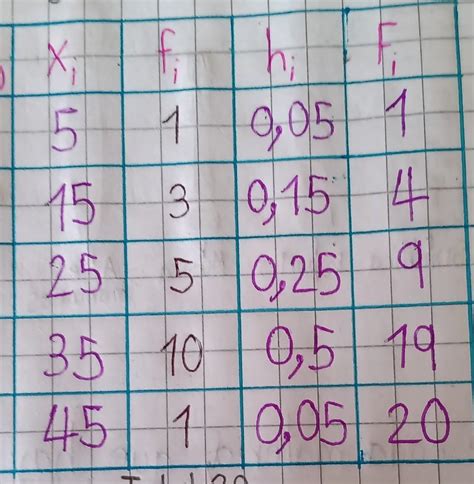 xᵢ fᵢ hᵢ Fᵢ
5 1 0,05 1
15 3 0,15 4
25 5 0,25 9
35 10 0,5 19
45 1 0,05 20